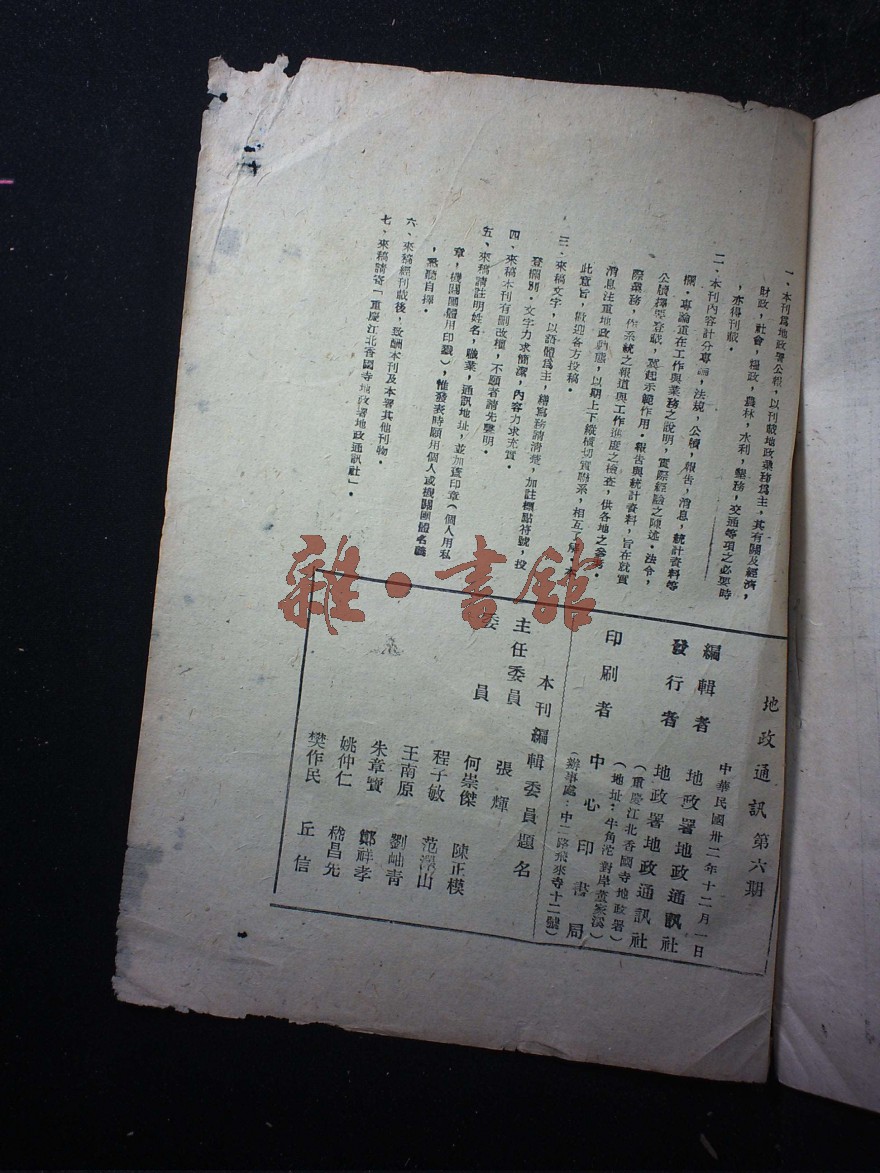 一、本刊爲地政署公報，以刊載地政業務爲主，其有關及經濟，
財政，社會，糧政，農林，水利，墾務，交通等項之必要時
，亦得刊載。
二、本刊內容計分專論，法規，公牘，報告，消息，統計資料等
欄。專論重在工作與業務之說明，實際經驗之陳述。法令，
公牘擇要登載，冀起示範作用。報告與統計資料，旨在就實
際業務，作系統之報道與工作進度之檢查，供各地之參考。
消息注重地政動態，以期上下縱橫切實聯系，相互了解。本
此意旨，歡迎各方投稿。
三、來稿文字，以語體爲主，繕寫務請清楚，加註標點符號，投
登欄別。文字力求簡潔，內容力求充實。
四、來稿本刊有刪改權，不願者請先聲明。
五、來稿請註明姓名，職業，通訊地址，並加蓋印章（個人用私
章，機關團體用印戳），惟發表時願用個人或機關團體名義
，悉聽自擇。
六、來稿經刊載後，致酬本刊及本署其他刊物。
七、來稿請寄「重慶江北香國寺地政署地政通訊社」。
地政通訊第六期
中華民國卅二年十二月一日
編輯者　地政署地政通訊社
發行者　地政署地政通訊社
（重慶江北香國寺地政署）
（地址：牛角沱對岸董家溪）
印刷者　中心印書局
（辦事處：中二路飛來寺十二號）
本刊編輯委員題名
主任委員　張輝
委員　何崇傑　陳正模
程子敏　范澤山
王南原　劉岫青
朱章寶　鄭祥孝
姚仲仁　嵇昌先
樊作民　丘信
雜·書館